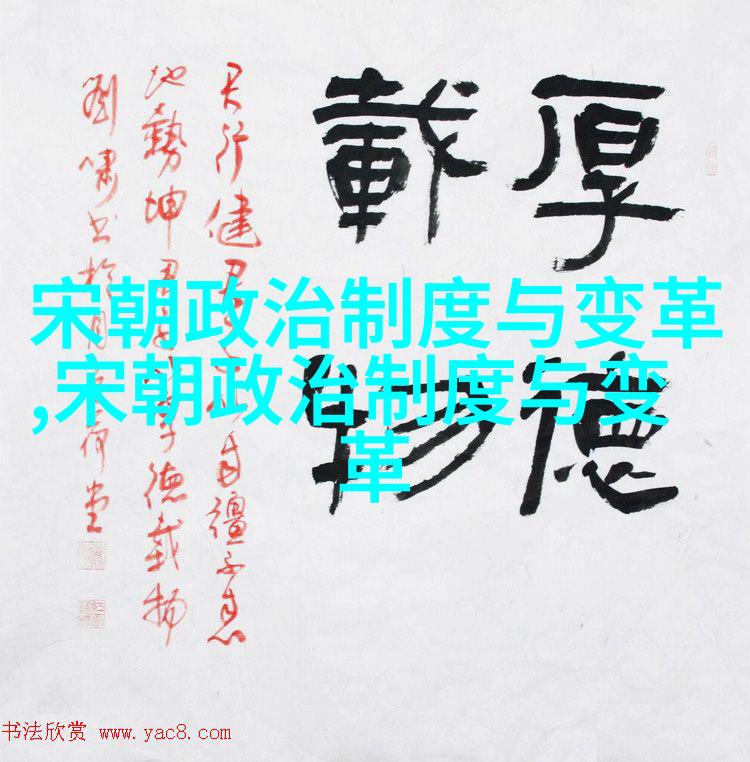 厚德
載物
天行健君子以自彊不息
地勢坤君子以厚德載物
宋朝政治制度与变革
,宋朝政治制度与变
革
书法欣赏 www.yac8.com